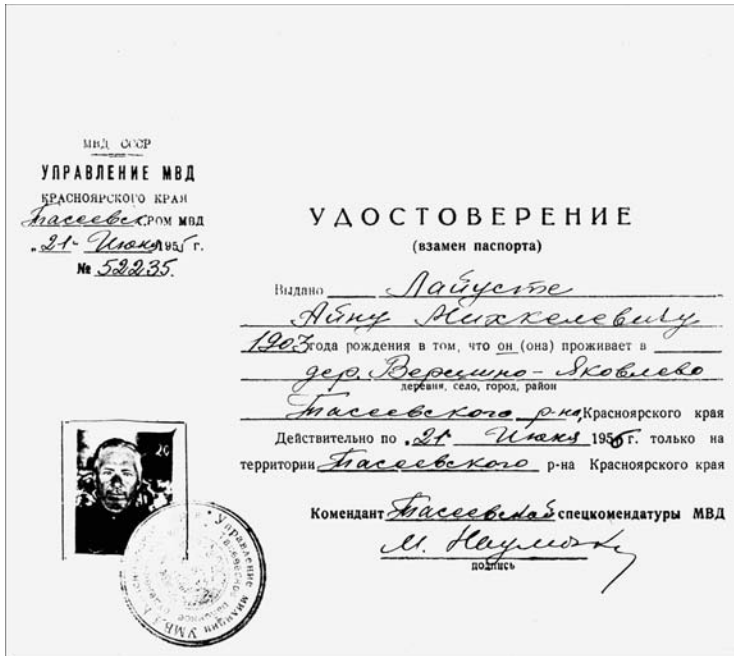 МВД СССР
УПРАВЛЕНИЕ МВД
КРАСНОЯРСКОГО КРАЯ
Тасеевск. РОМ МВД
"21" Июня 1955 г.
№ 52235.
УДОСТОВЕРЕНИЕ
(взамен паспорта)
Выдано Лайусте
Айну Михкелевичу
1903 года рождения в том, что он (она) проживает в
дер. Вершино-Яковлево
деревня, село, город, район
Тасеевского р-на, Красноярского края
Действительно по "21" Июня 1956 г. только на
территории Тасеевского р-на Красноярского края
Комендант Тасеевской спецкомендатуры МВД
М. Наум
подпись
20
Управление милиции УМВД